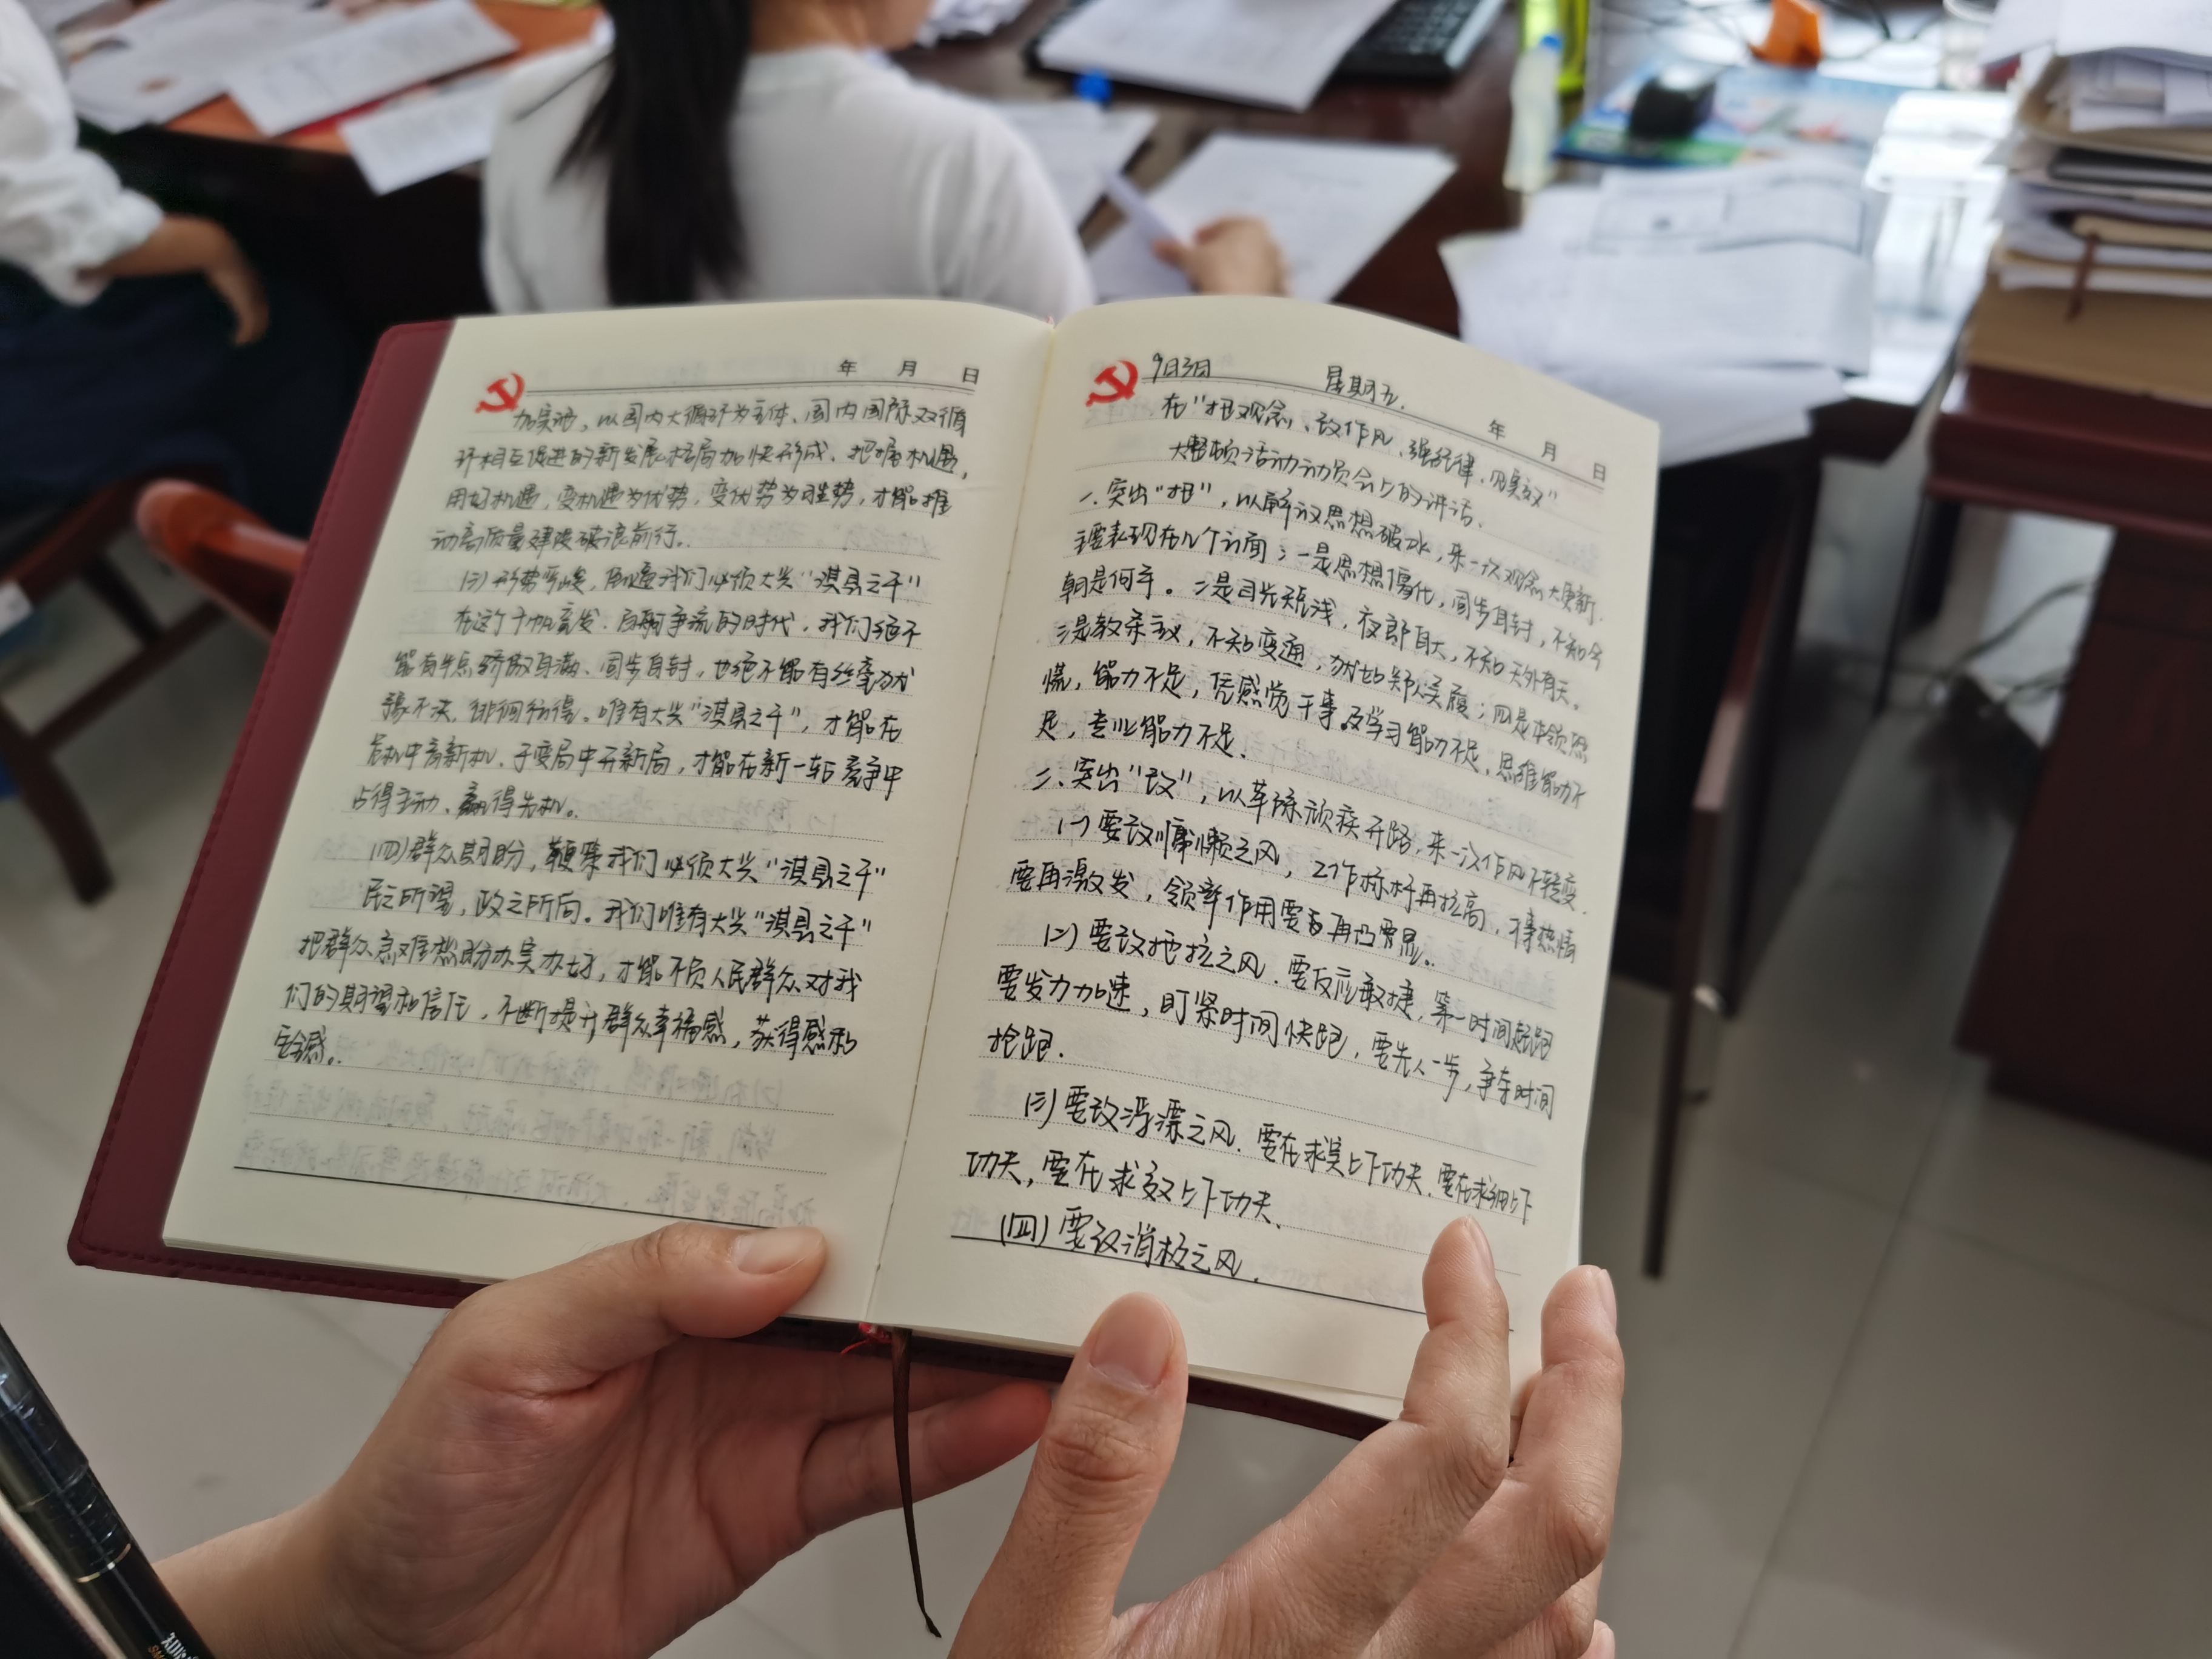 年 月 日
加实施，以国内大循环为主体、国内国际双循
环相互促进的新发展格局加快形成。把握机遇，
用好机遇，变机遇为优势，变优势为胜势，才能推
动高质量建设破浪前行。
(三)形势严峻，倒逼我们必须大兴“淇县之干”
在这个千帆竞发、百舸争流的时代，我们绝不
能有半点骄傲自满、固步自封，也绝不能有丝毫犹
豫不决、徘徊彷徨。唯有大兴“淇县之干”，才能在
危机中育新机、于变局中开新局，才能在新一轮竞争中
占得主动、赢得先机。
(四)群众期盼，鞭策我们必须大兴“淇县之干”
民之所望，政之所向。我们唯有大兴“淇县之干”
把群众急难愁盼办实办好，才能不负人民群众对我
们的期望和信任，不断提升群众幸福感，获得感和
安全感。
9月3日 星期五.
年 月 日
在“扭观念、改作风、强纪律、见实效”
大整顿活动动员会上的讲话.
一.突出“扭”，以解放思想破冰，来一次观念大更新.
主要表现在几个方面：一是思想僵化，固步自封，不知今
朝是何年。二是目光短浅，夜郎自大，不知天外有天。
三是教条主义，不知变通，犹如郑人买履；四是本领恐
慌，能力不足，凭感觉干事。及学习能力不足，思维能力不
足，专业能力不足.
二.突出“改”，以革除顽疾开路，来一次作风大转变.
(一)要改慵懒之风，工作标杆再拉高，干事热情
要再激发，领率作用要再凸显。
(二)要改拖拉之风.要反应敏捷，第一时间起跑
要发力加速，盯紧时间快跑，要先人一步，争夺时间
抢跑.
(三)要改浮漂之风.要在求实上下功夫.要在求细上下
功夫，要在求效上下功夫.
(四)要改消极之风.